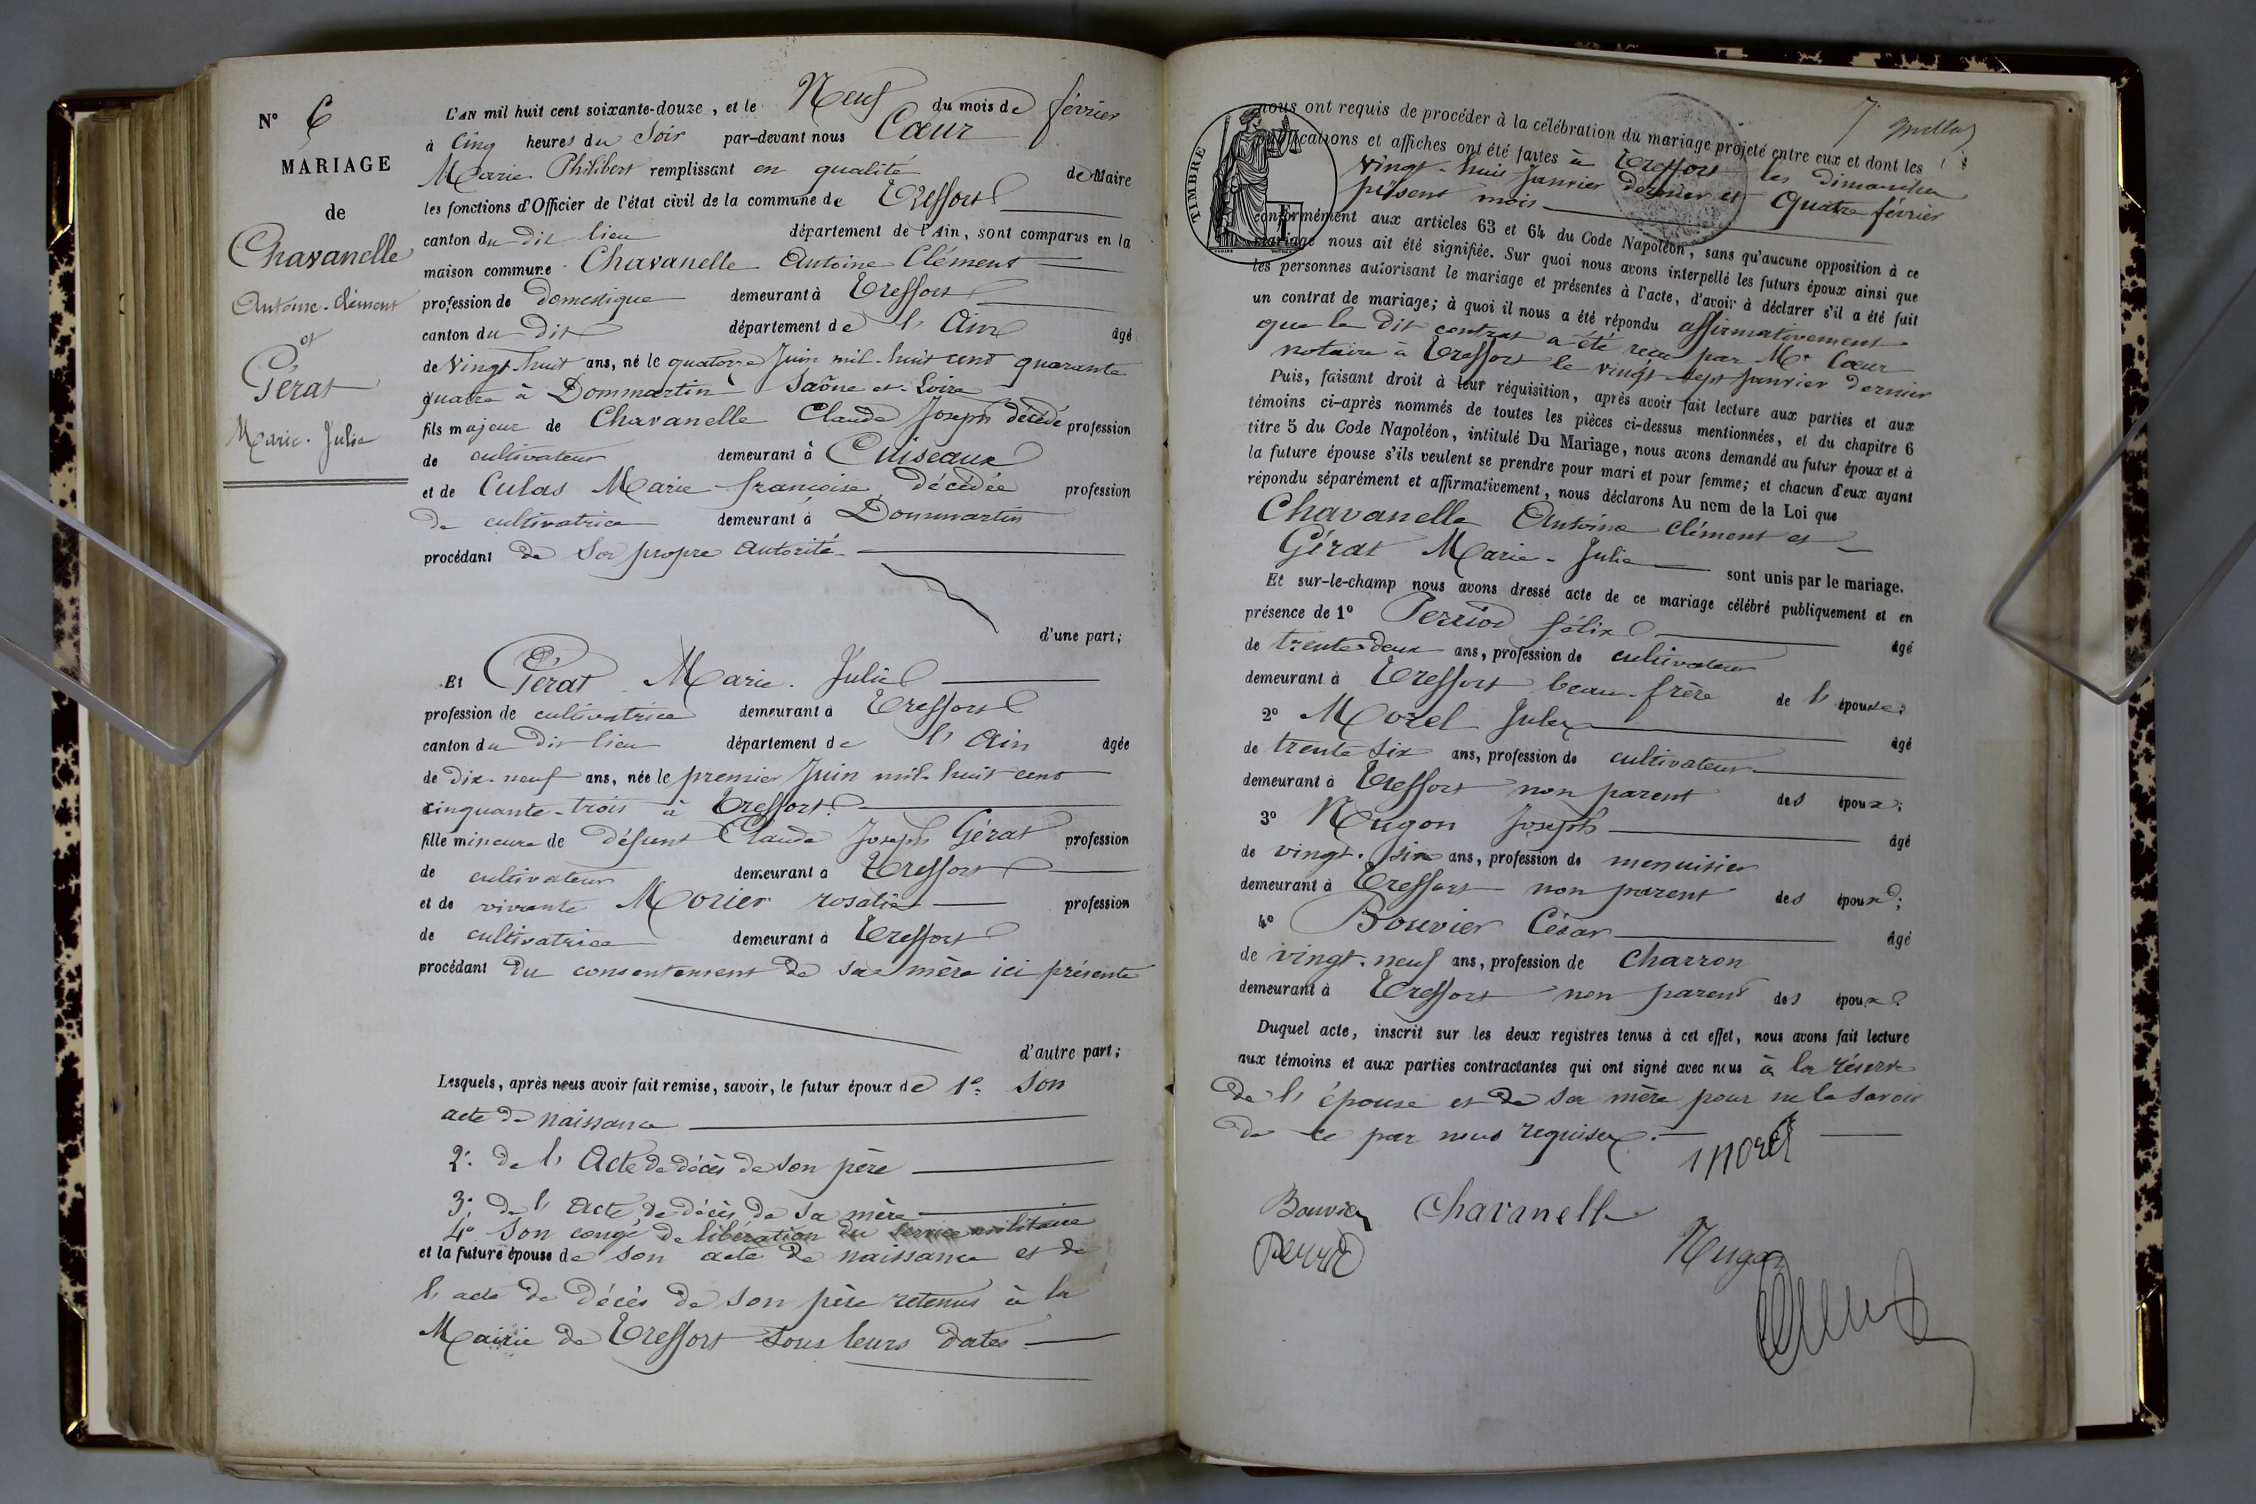 N° 6
MARIAGE
de
Chavanelle
Antoine-Clément
et
Gérat
Marie-Julie
L'AN mil huit cent soixante-douze, et le Neuf du mois de février
à Cinq heures du Soir par-devant nous Cœur
Marie Philibert remplissant en qualité de Maire
les fonctions d'Officier de l'état civil de la commune de Treffort
canton du dit lieu département de l'Ain, sont comparus en la
maison commune Chavanelle Antoine Clément
profession de domestique demeurant à Treffort
canton du dit département de l'Ain âgé
de Vingt-huit ans, né le quatorze Juin mil-huit cent quarante
quatre à Dommartin Saône et-Loire
fils majeur de Chavanelle Claude Joseph décédé profession
de cultivateur demeurant à Cuiseaux
et de Culas Marie françoise décédée profession
de cultivatrice demeurant à Dommartin
procédant de Sa propre autorité
d'une part;
Et Gérat Marie-Julie
profession de cultivatrice demeurant à Treffort
canton du dit lieu département de l'Ain âgée
de dix-neuf ans, née le premier Juin mil-huit cent
cinquante-trois à Treffort
fille mineure de défunt Claude Joseph Gérat profession
de cultivateur demeurant à Treffort
et de vivante Morier rosalie profession
de cultivatrice demeurant à Treffort
procédant du consentement de sa mère ici présente
d'autre part;
Lesquels, après nous avoir fait remise, savoir, le futur époux de 1°. Son
acte de naissance
2°. de l'Acte de décès de son père
3°. de l'Acte de décès de sa mère
4° Son congé de libération du service militaire
et la future épouse de son acte de naissance et de
l'acte de décès de son père retenus à la
Mairie de Treffort sous leurs dates
TIMBRE
nous ont requis de procéder à la célébration du mariage projeté entre eux et dont les
publications et affiches ont été faites à Treffort les dimanches
vingt-huit Janvier dernier et Quatre février
présent mois
conformément aux articles 63 et 64 du Code Napoléon, sans qu'aucune opposition à ce
mariage nous ait été signifiée. Sur quoi nous avons interpellé les futurs époux ainsi que
les personnes autorisant le mariage et présentes à l'acte, d'avoir à déclarer s'il a été fait
un contrat de mariage; à quoi il nous a été répondu affirmativement
que le dit contrat a été reçu par Me Cœur
notaire à Treffort le vingt-sept Janvier dernier
Puis, faisant droit à leur réquisition, après avoir fait lecture aux parties et aux
témoins ci-après nommés de toutes les pièces ci-dessus mentionnées, et du chapitre 6
titre 5 du Code Napoléon, intitulé Du Mariage, nous avons demandé au futur époux et à
la future épouse s'ils veulent se prendre pour mari et pour femme; et chacun d'eux ayant
répondu séparément et affirmativement, nous déclarons Au nom de la Loi que
Chavanelle Antoine Clément et
Gérat Marie-Julie sont unis par le mariage.
Et sur-le-champ nous avons dressé acte de ce mariage célébré publiquement et en
présence de 1° Perriod félix âgé
de trente deux ans, profession de cultivateur
demeurant à Treffort beau-frère de l'épouse;
2° Morel Jules âgé
de trente six ans, profession de cultivateur
demeurant à Treffort non parent des époux;
3° Nugon Joseph âgé
de vingt-six ans, profession de menuisier
demeurant à Treffort non parent des époux;
4° Bouvier César âgé
de vingt-neuf ans, profession de Charron
demeurant à Treffort non parent des époux
Duquel acte, inscrit sur les deux registres tenus à cet effet, nous avons fait lecture
aux témoins et aux parties contractantes qui ont signé avec nous à la réserve
de l'épouse et de sa mère pour ne le savoir
de ce par nous requises.
Morel
Bouvier Chavanelle
Nugon